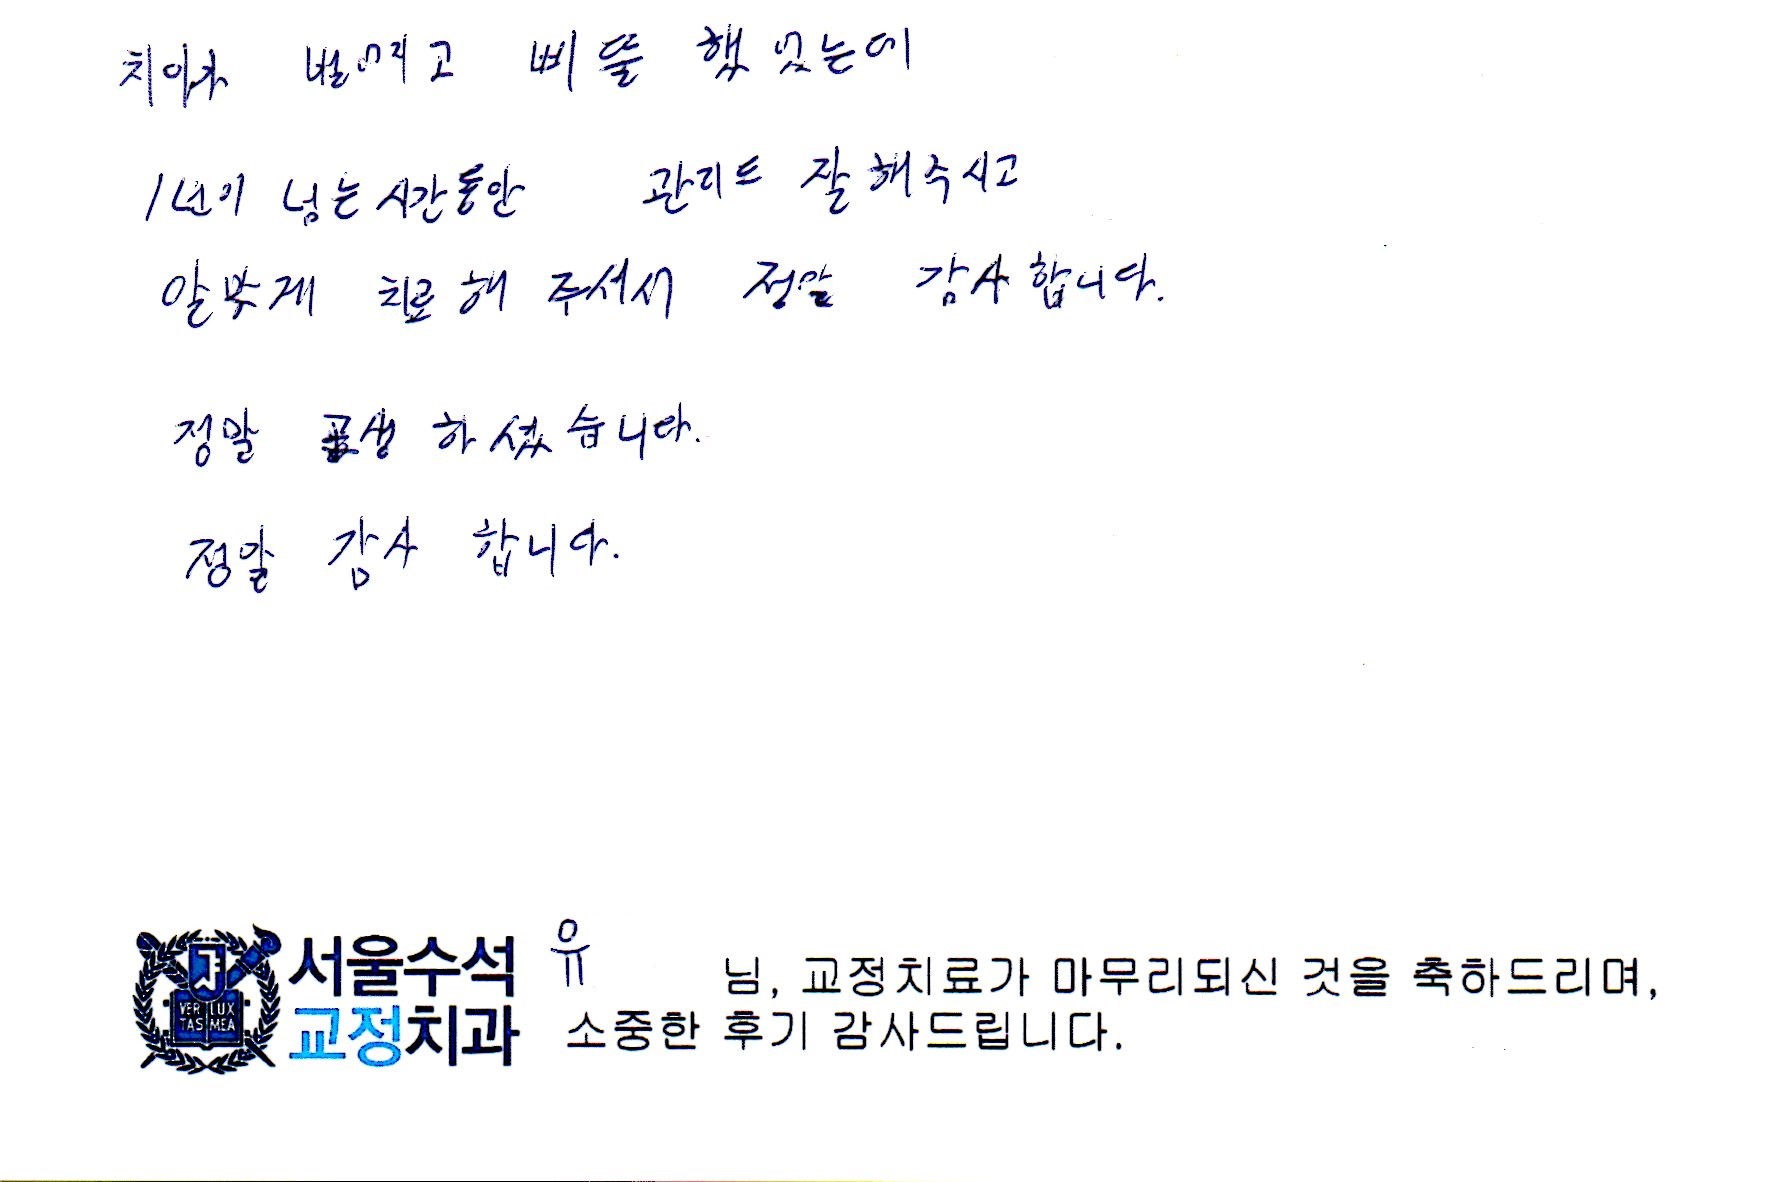 치아가 벌어지고 삐뚤 했었는데
1년이 넘는 시간동안 관리도 잘해주시고
알맞게 치료해 주셔서 정말 감사합니다.
정말 고생 하셨습니다.
정말 감사 합니다.
서울수석
교정치과
VERI LUX
TAS MEA
유 님, 교정치료가 마무리되신 것을 축하드리며,
소중한 후기 감사드립니다.